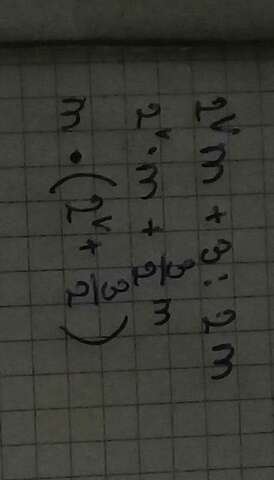 2ᵛ·m + 3 : 2 m
2ᵛ · m + 3/2 m
m · (2ᵛ + 3/2)